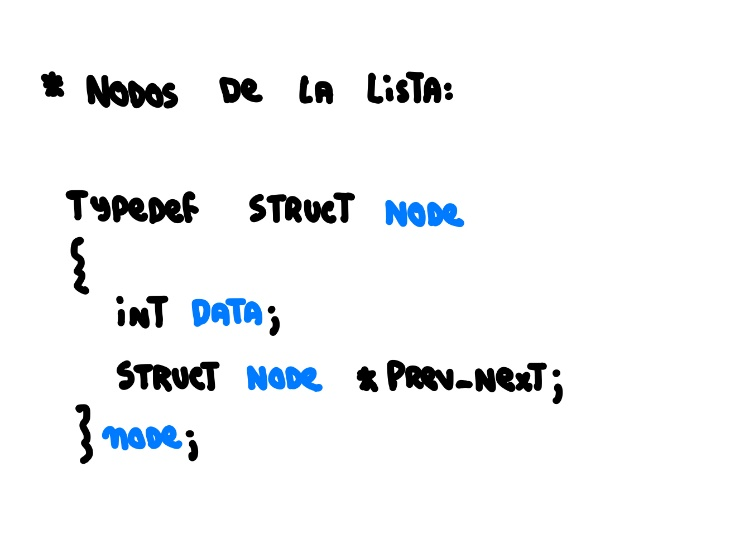 * NODOS De LA LiSTA:
TypeDef STRUCT NODe
{
inT DATA;
STRUCT NODe *Prev_NexT;
} node;